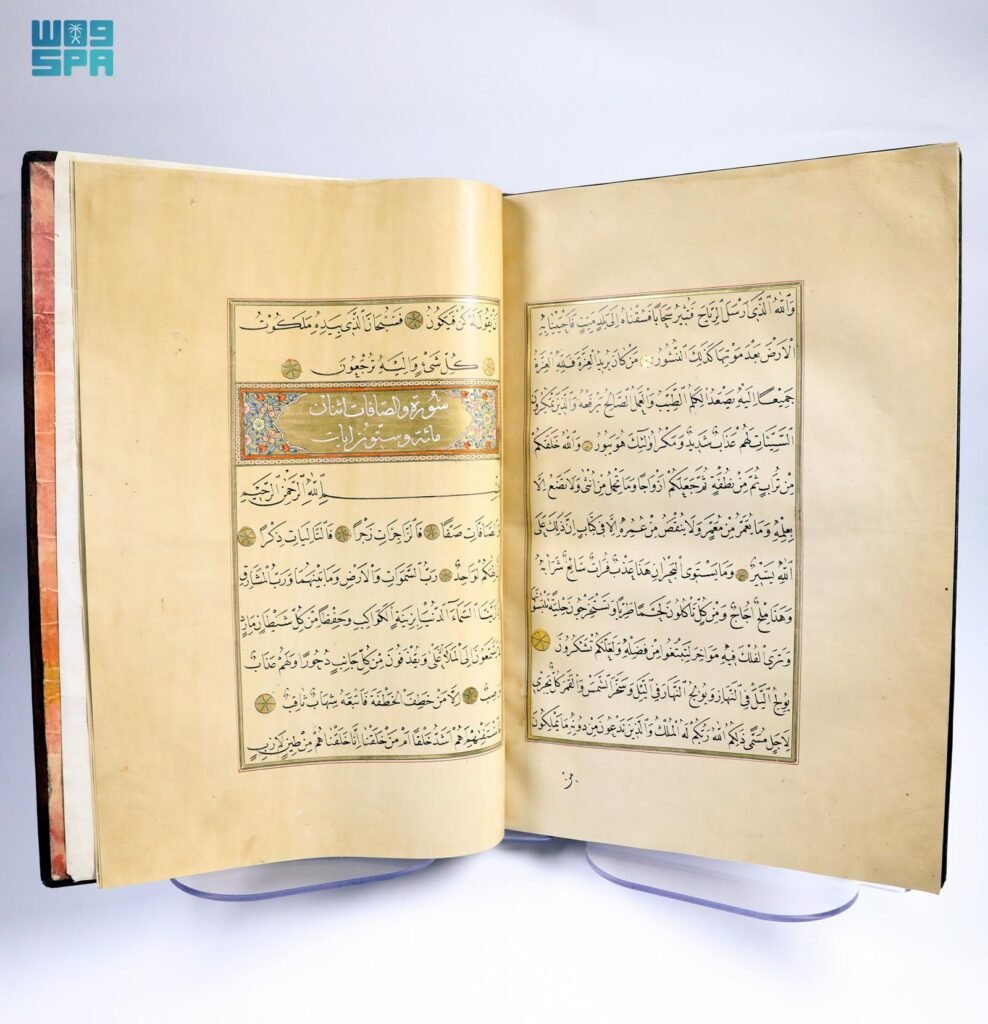 W09
SPA
وَٱللّٰهُ ٱلَّذٖى اَرْسَلَ ٱلرِّيَاحَ فَتُثٖيرُ سَحَابًا فَسُقْنَاهُ اِلٰى بَلَدٍ مَيِّتٍ فَاَحْيَيْنَا بِهِ
الْاَرْضَ بَعْدَ مَوْتِهَا كَذٰلِكَ ٱلنُّشُورُ مَنْ كَانَ يُرٖيدُ الْعِزَّةَ فَلِلّٰهِ الْعِزَّةُ
جَمٖيعًا اِلَيْهِ يَصْعَدُ الْكَلِمُ الطَّيِّبُ وَالْعَمَلُ الصَّالِحُ يَرْفَعُهُ وَالَّذٖينَ يَمْكُرُونَ
السَّيِّئَاتِ لَهُمْ عَذَابٌ شَدٖيدٌ وَمَكْرُ اُولٰئِكَ هُوَ يَبُورُ وَاللّٰهُ خَلَقَكُمْ
مِنْ تُرَابٍ ثُمَّ مِنْ نُطْفَةٍ ثُمَّ جَعَلَكُمْ اَزْوَاجًا وَمَا تَحْمِلُ مِنْ اُنْثٰى وَلَا تَضَعُ اِلَّا
بِعِلْمِهٖ وَمَا يُعَمَّرُ مِنْ مُعَمَّرٍ وَلَا يُنْقَصُ مِنْ عُمُرِهٖ اِلَّا فٖى كِتَابٍ اِنَّ ذٰلِكَ عَلَى
اللّٰهِ يَسٖيرٌ وَمَا يَسْتَوِى الْبَحْرَانِ هٰذَا عَذْبٌ فُرَاتٌ سَائِغٌ شَرَابُهُ
وَهٰذَا مِلْحٌ اُجَاجٌ وَمِنْ كُلٍّ تَاْكُلُونَ لَحْمًا طَرِيًّا وَتَسْتَخْرِجُونَ حِلْيَةً
وَتَرَى الْفُلْكَ فٖيهِ مَوَاخِرَ لِتَبْتَغُوا مِنْ فَضْلِهٖ وَلَعَلَّكُمْ تَشْكُرُونَ
يُولِجُ الَّيْلَ فِى النَّهَارِ وَيُولِجُ النَّهَارَ فِى الَّيْلِ وَسَخَّرَ الشَّمْسَ وَالْقَمَرَ كُلٌّ يَجْرٖى
لِاَجَلٍ مُسَمًّى ذٰلِكُمُ اللّٰهُ رَبُّكُمْ لَهُ الْمُلْكُ وَالَّذٖينَ تَدْعُونَ مِنْ دُونِهٖ مَا يَمْلِكُونَ
من
يَقُولَ لَهُ كُنْ فَيَكُونُ فَسُبْحَانَ الَّذٖى بِيَدِهٖ مَلَكُوتُ
كُلِّ شَىْءٍ وَاِلَيْهِ تُرْجَعُونَ
سورة والصافات اثنان
مائة وستون ايات
بِسْمِ اللّٰهِ الرَّحْمٰنِ الرَّحٖيمِ
وَالصَّافَّاتِ صَفًّا فَالزَّاجِرَاتِ زَجْرًا فَالتَّالِيَاتِ ذِكْرًا
اِلٰهَكُمْ لَوَاحِدٌ رَبُّ السَّمٰوَاتِ وَالْاَرْضِ وَمَا بَيْنَهُمَا وَرَبُّ الْمَشَارِقِ
زَيَّنَّا السَّمَاءَ الدُّنْيَا بِزٖينَةٍ الْكَوَاكِبِ وَحِفْظًا مِنْ كُلِّ شَيْطَانٍ مَارِدٍ
يَسَّمَّعُونَ اِلَى الْمَلَاِ الْاَعْلٰى وَيُقْذَفُونَ مِنْ كُلِّ جَانِبٍ دُحُورًا وَلَهُمْ عَذَابٌ
وَاصِبٌ اِلَّا مَنْ خَطِفَ الْخَطْفَةَ فَاَتْبَعَهُ شِهَابٌ ثَاقِبٌ
فَاسْتَفْتِهِمْ اَهُمْ اَشَدُّ خَلْقًا اَمْ مَنْ خَلَقْنَا اِنَّا خَلَقْنَاهُمْ مِنْ طٖينٍ لَازِبٍ